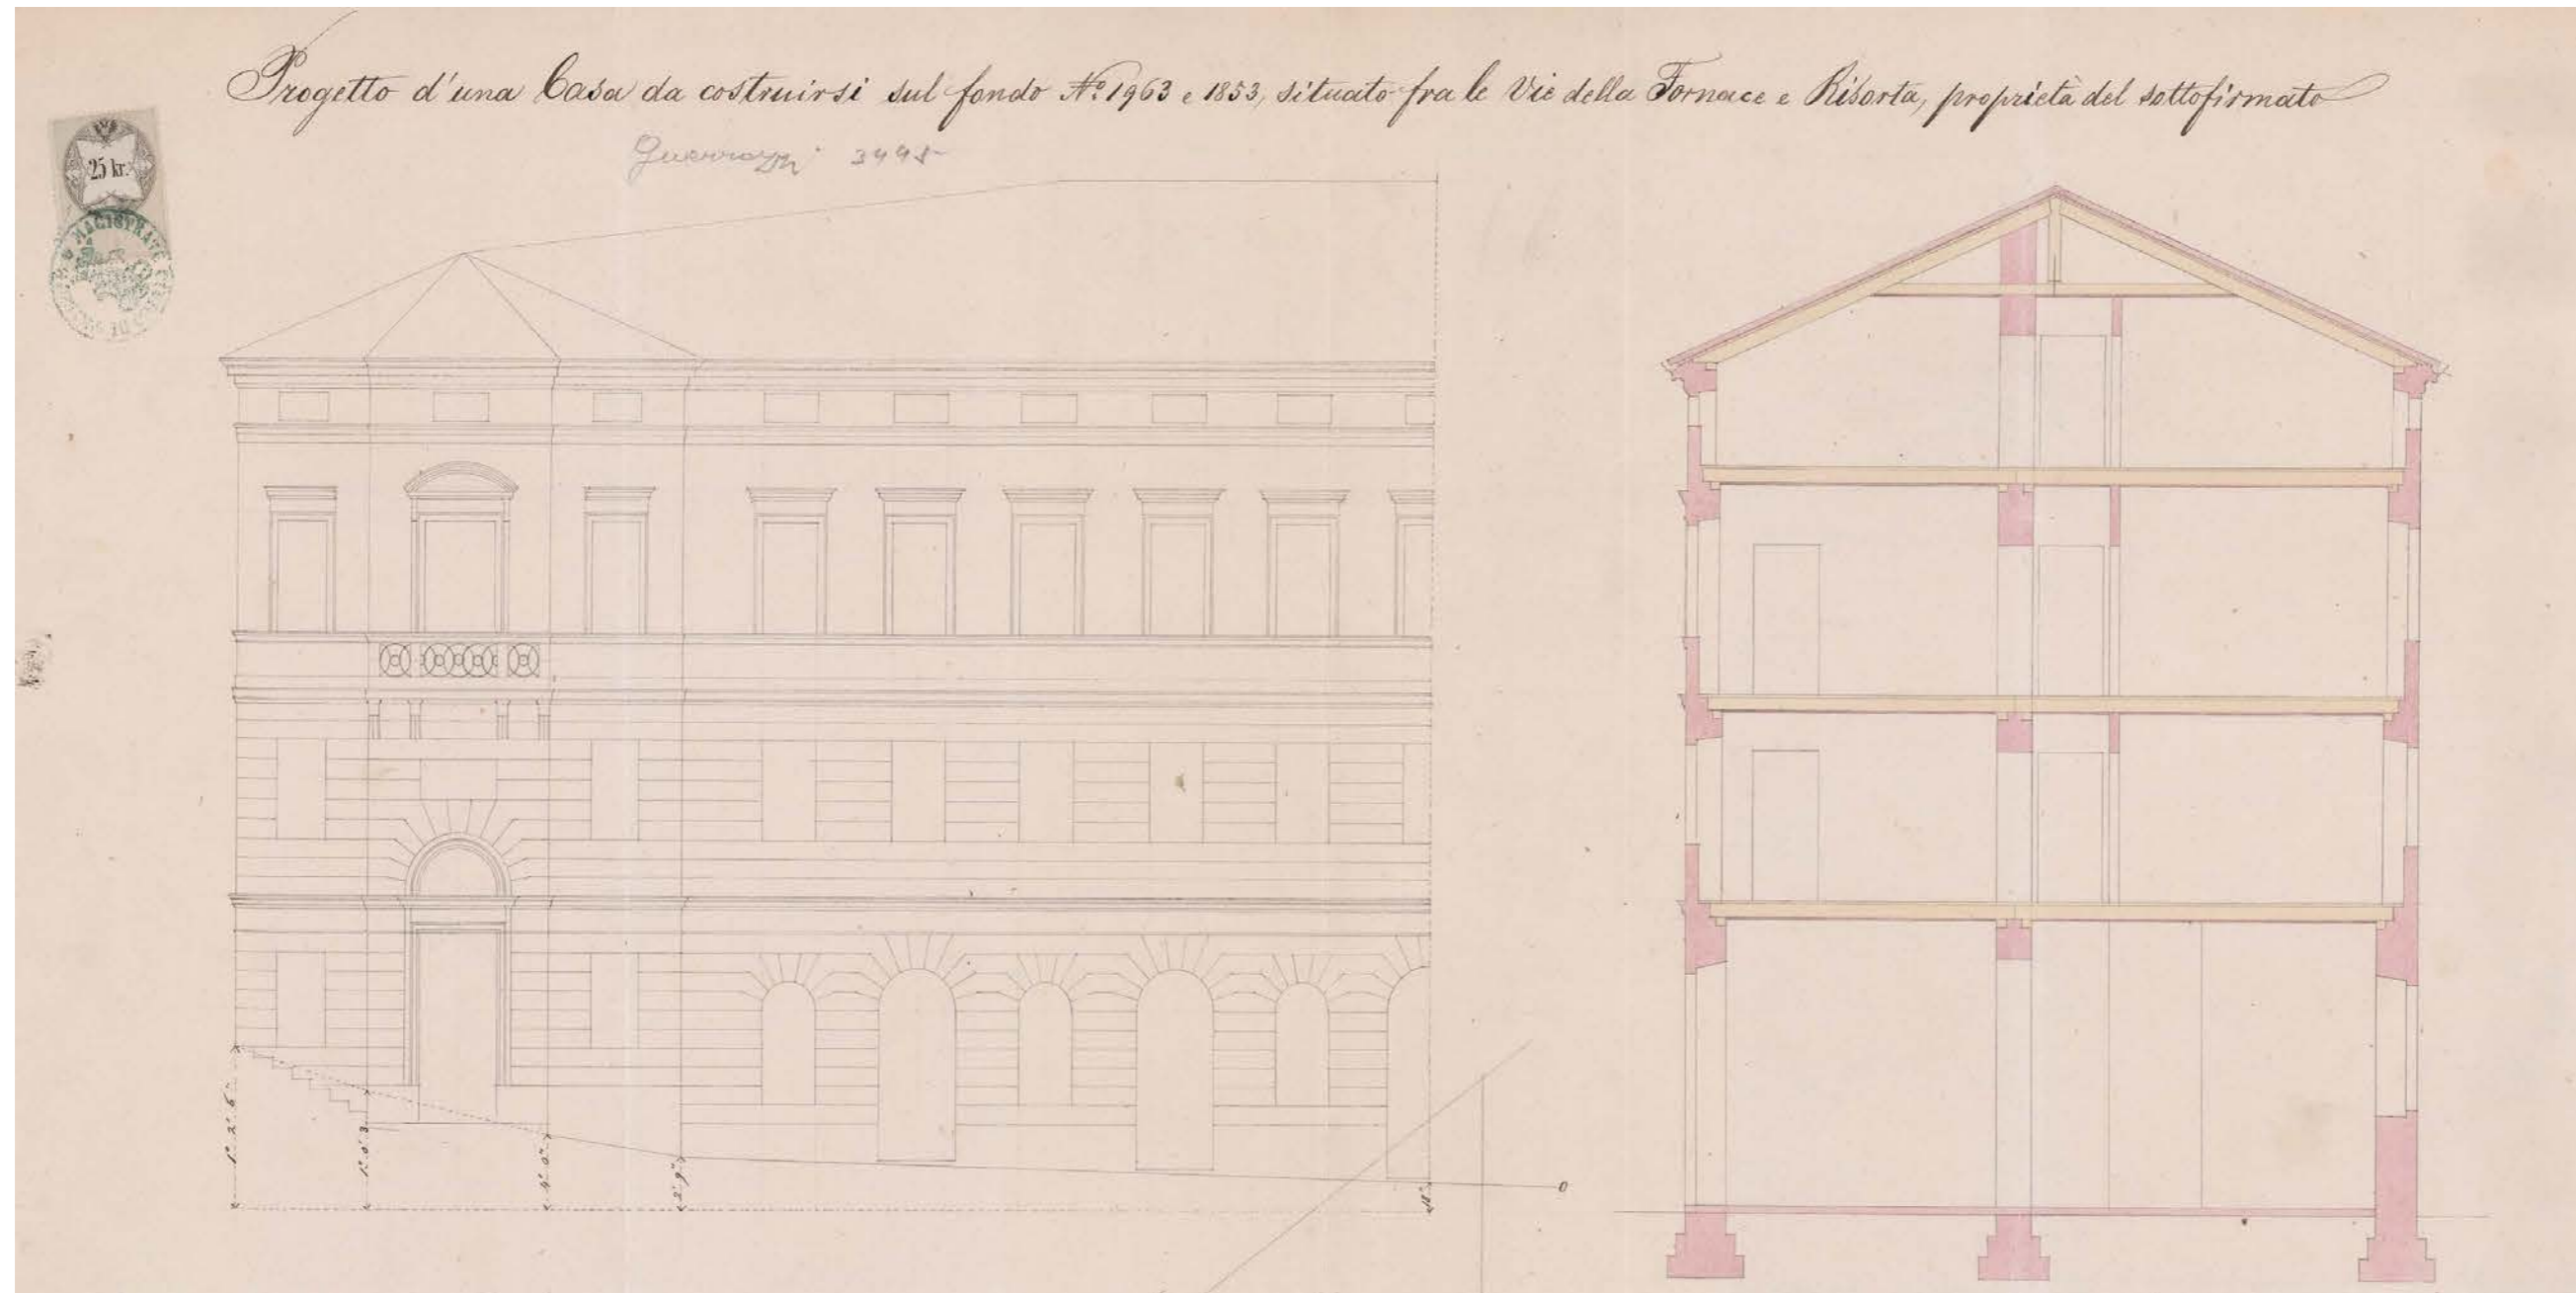 Progetto d'una Casa da costruirsi sul fondo No. 1963 e 1853, situato fra le Vie della Fornace e Risorta, proprietà del sottofirmato
25 kr.
Guerrazzi
MAGISTRAT
1° 2' 6"
1° 0' 3"
4' 0"
2' 9"
0